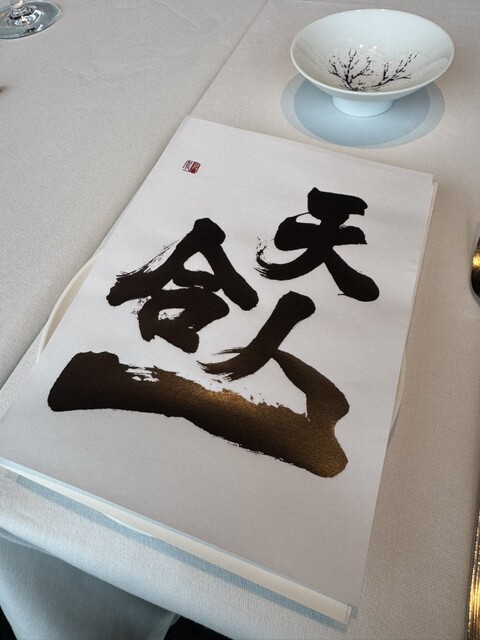 天人
合一